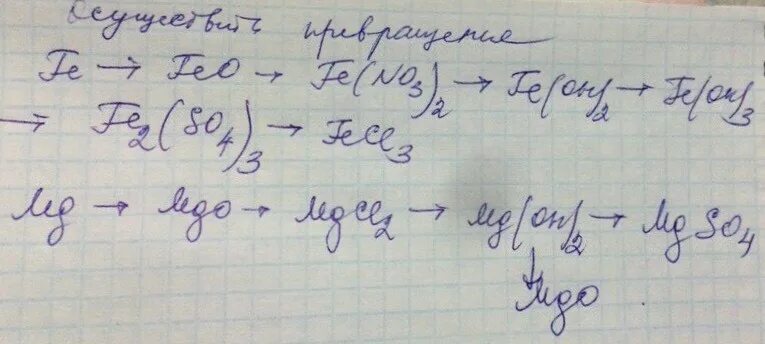 Осуществить превращение
Fe → FeO → Fe(NO₃)₂ → Fe(OH)₂ → Fe(OH)₃
→ Fe₂(SO₄)₃ → FeCl₃
Mg → MgO → MgCl₂ → Mg(OH)₂ → MgSO₄
↓
MgO